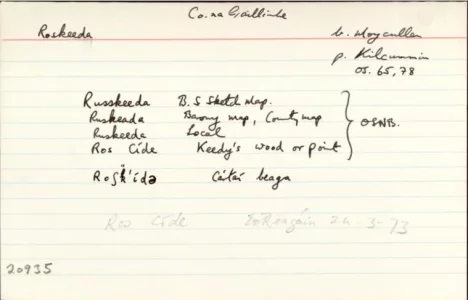 Co. na Gaillimhe
Roskeeda b. Moycullen
p. Kilcummin
OS. 65, 78
Russkeeda B.S Sketch Map.
Ruskeada Barony map, County map
Ruskeeda Local
Ros Cíde Keedy's wood or point
OSNB.
Cártaí beaga
Ros Cíde 24-3-73
20935